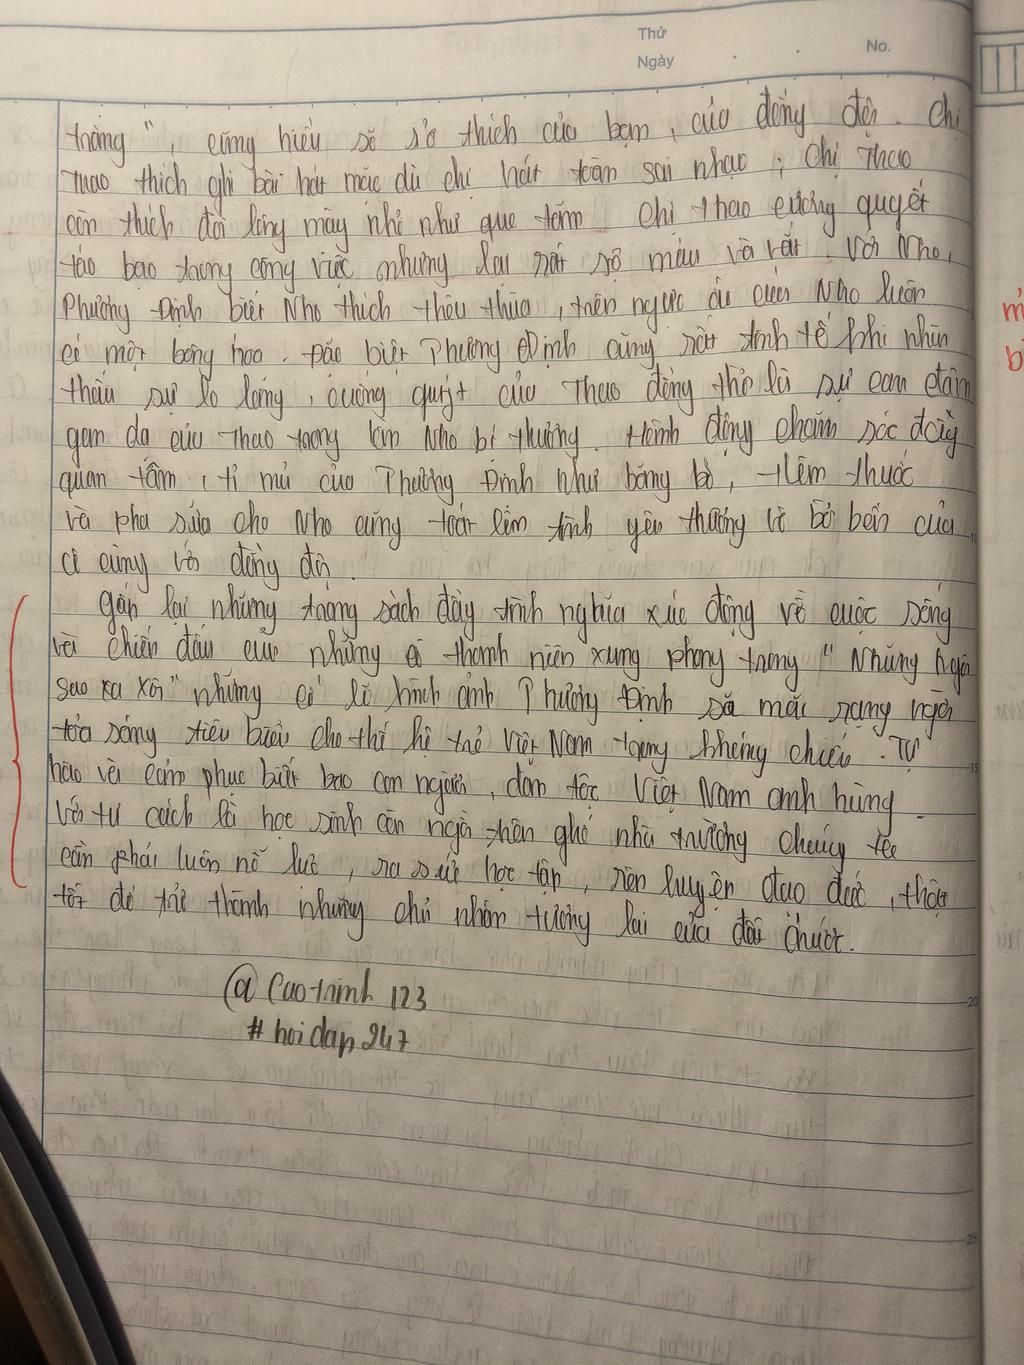 Thứ
Ngày
No.
trăng", cũng hiểu sẽ sở thích của bạn, của đồng đội. Chị
Thao thích ghi bài hát mặc dù chị hát toàn sai nhạc; Chị Thao
còn thích đôi lông mày nhỏ như que tăm. Chị Thao cương quyết
táo bạo trong công việc nhưng lại rất sợ máu và vắt. Với Nho,
Phương Định biết Nho thích thêu thùa, trên ngực áo của Nho luôn
có một bông hoa. Đặc biệt Phương Định cũng rất tinh tế khi nhìn
thấu sự lo lắng, cuống quýt của Thao đồng thời là sự can đảm
gan dạ của Thao trong lần Nho bị thương. Hành động chăm sóc đầy
quan tâm, tỉ mỉ của Phương Định như băng bó, tiêm thuốc
và pha sữa cho Nho cũng toát lên tình yêu thương và bờ bến của
cô cùng với đồng đội.
gấp lại những trang sách đầy tình nghĩa xúc động về cuộc sống
và chiến đấu của những cô thanh niên xung phong trong " Những ngôi
sao xa xôi" nhưng có lẽ hình ảnh Phương Định sẽ mãi rạng ngời
tỏa sáng tiêu biểu cho thế hệ trẻ Việt Nam trong kháng chiến. Tự
hào và cảm phục biết bao con người, dân tộc Việt Nam anh hùng.
Với tư cách là học sinh còn ngồi trên ghế nhà trường chúng ta
cần phải luôn nỗ lực, ra sức học tập, rèn luyện đạo đức, thật
tốt để trở thành những chủ nhân tương lai của đất nước.
@ Caotrinh 123
# hoidap247
10
15
20
25